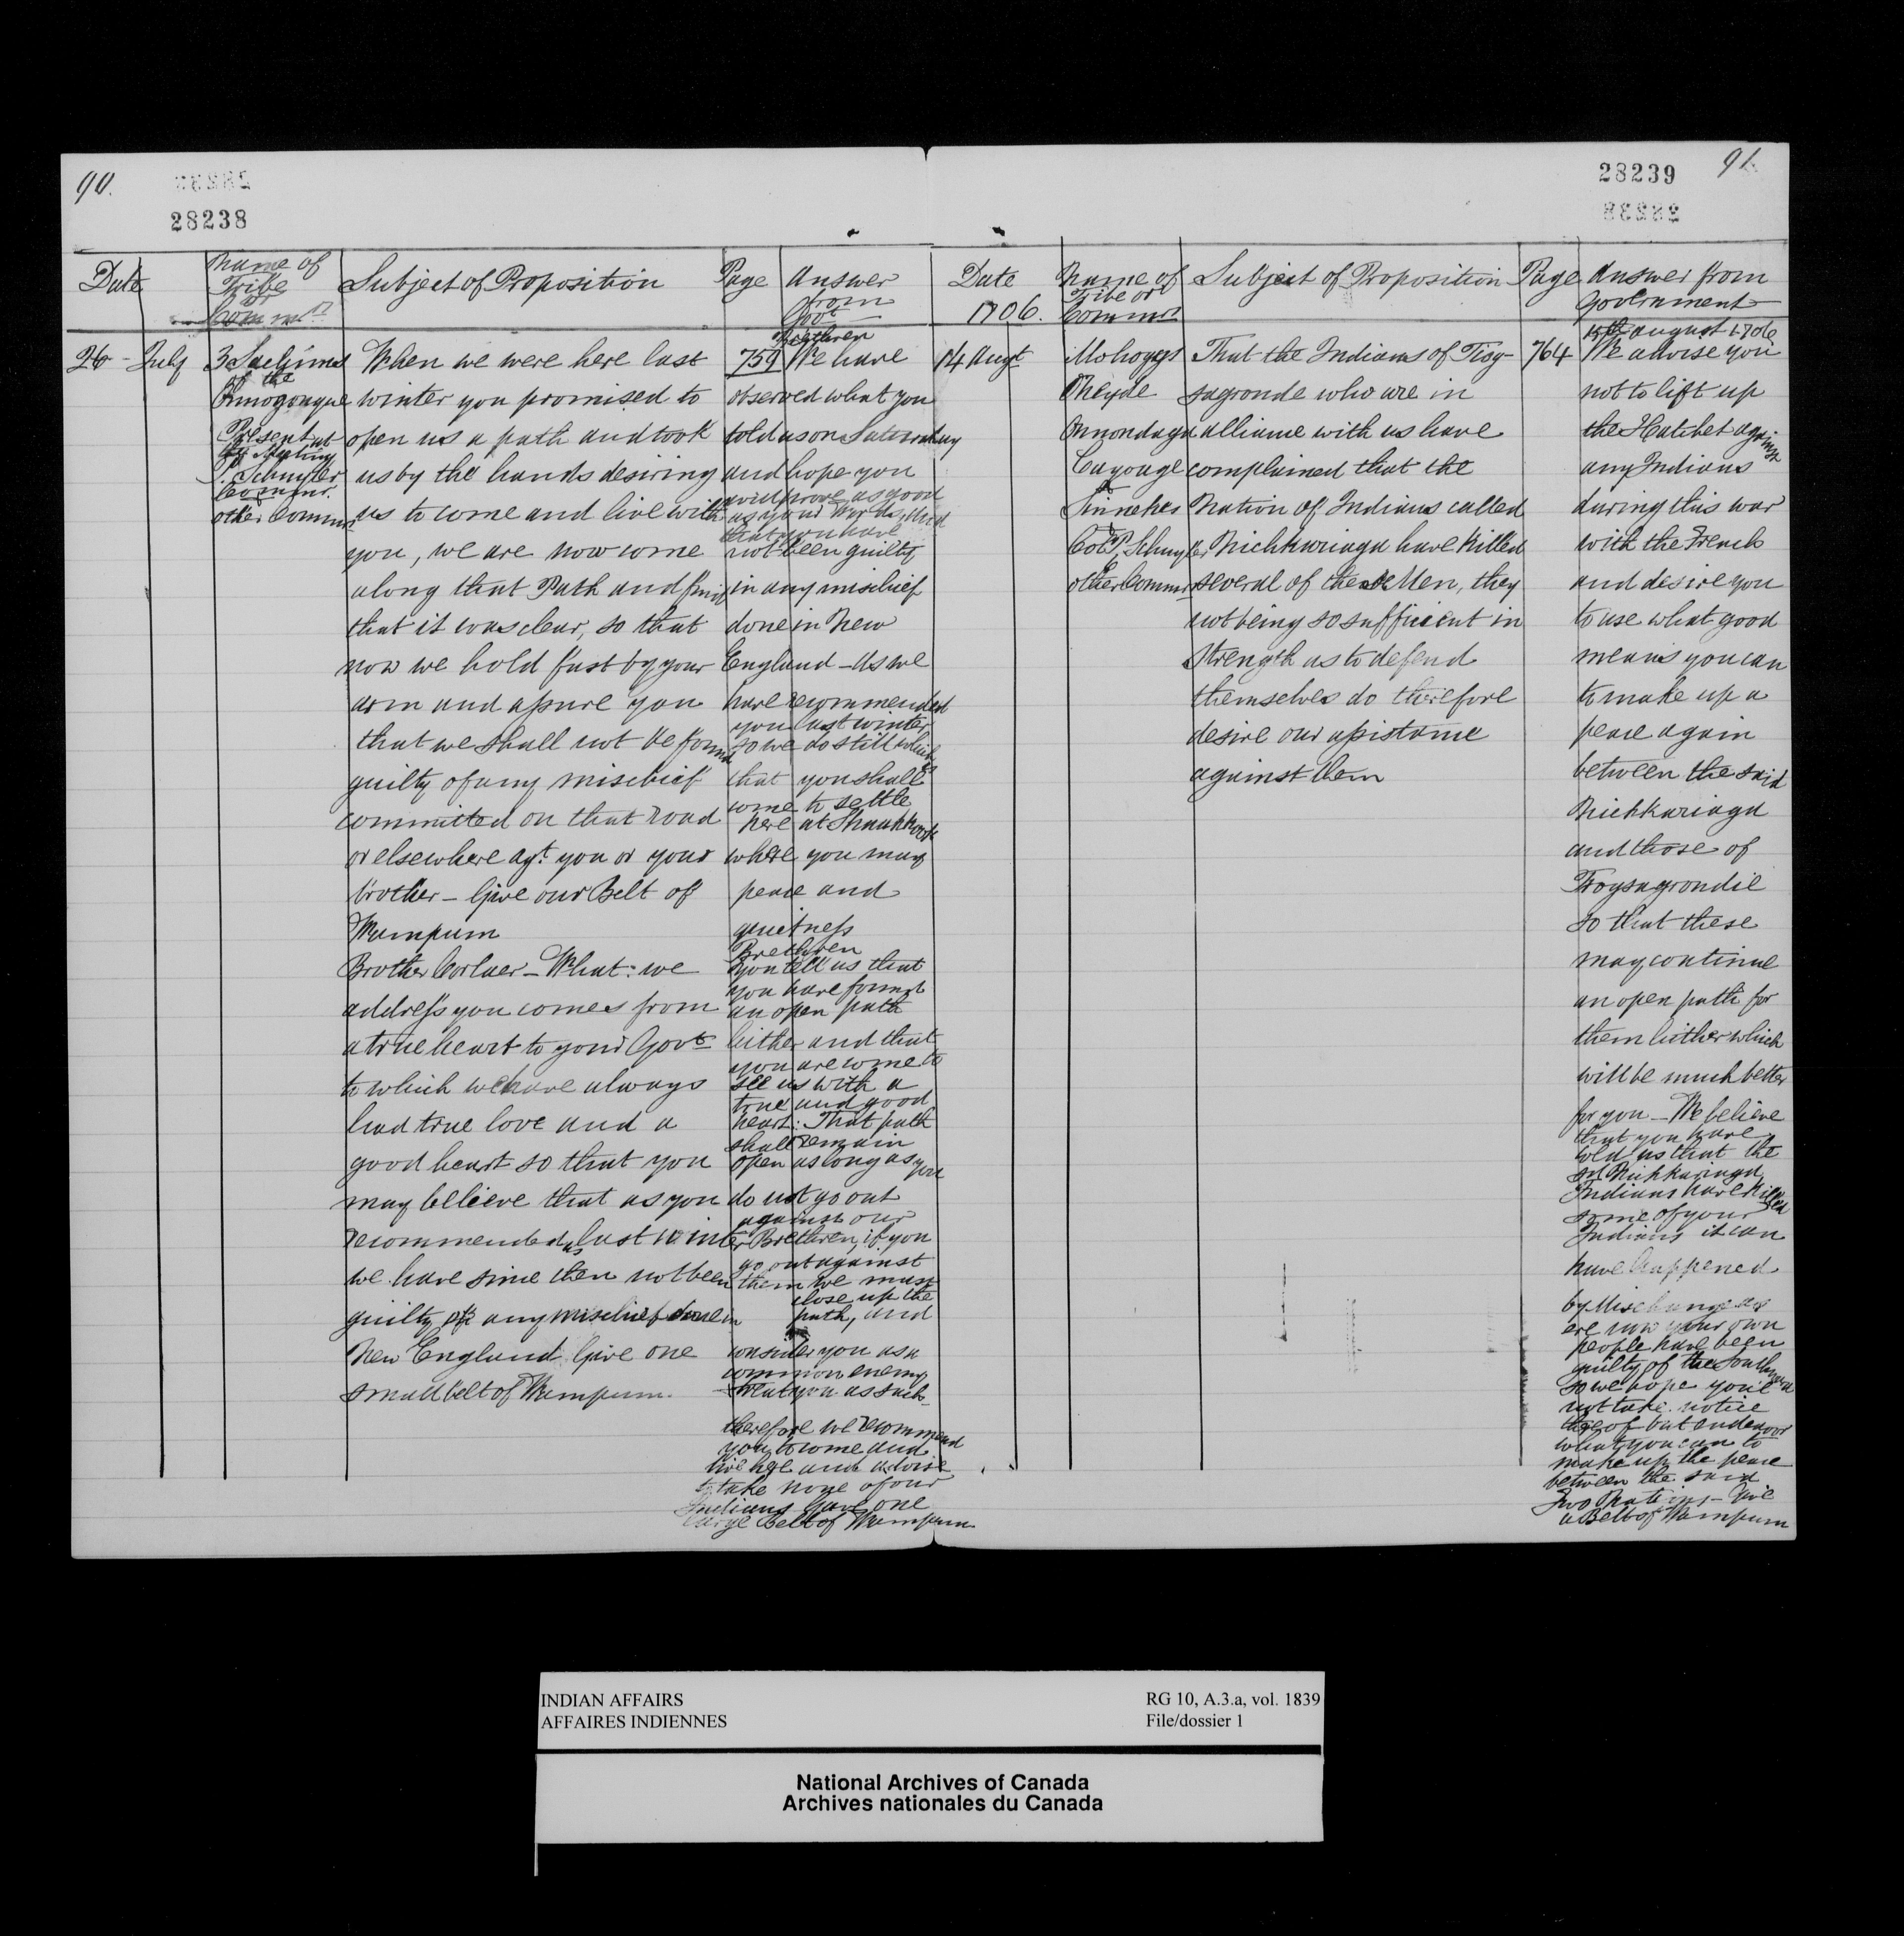 90.
28238
Date
Name of
Tribe
or
Commrs
Subject of Proposition
Page
Answer
from
Govt
26 - July
3 Sachims
of the
Onnogongue
Present at
the Meeting
P. Schuyler
Commr.
other Commrs
When we were here last
winter you promised to
open us a path and took
us by the hands desiring
us to come and live with
you, we are now come
along that Path and find
that it was clear, so that
now we hold fast by your
arm and assure you
that we shall not be found
guilty of any mischief
committed on that road
or elsewhere agt. you or your
brother - Give our Belt of
Wampum
Brother Corlaer - What: we
address you comes from
a true heart to your Govt
to which we have always
had true love and a
good heart so that you
may believe that as you
recommended us last winter
we have since then not been
guilty of any mischief done in
New England Give one
small belt of Wampum.
759
Brethren
We have
observed what you
told us on Saturday
and hope you
will prove as good
as your words, and
that you have
not been guilty
in any mischief
done in New
England - As we
have recommended
you last winter
so we do still
that you shall
come to settle
here at
where you may
peace and
quietness
Brethren
You tell us that
you have found
an open path
hither and that
you are come to
see us with a
true and good
heart: That path
shall remain
open as long as you
do not go out
against our
Brethren, if you
go out against
them we must
close up the
path, and
consider you as a
common enemy
treat you as such
therefore we recommend
you to come and
live here and advise
to take none of our
Indians Gave one
large Belt of Wampum
28239
91.
Date
1706.
Name of
Tribe or
Commrs
Subject of Proposition
Page
Answer from
Government
14 Augt
Mohoggs
Oneyde
Onnondaga
Cayouge
&
Sinnekes
Col P. Schuyler
&
other Commrs
That the Indians of Tioy-
sagronde who are in
alliance with us have
complained that the
Nation of Indians called
Nichkariaga have killed
several of these Men, they
not being so sufficient in
strength as to defend
themselves do therefore
desire our assistance
against them
764
15th august 1706
We advise you
not to lift up
the Hatchet against
any Indians
during this war
with the French
and desire you
to use what good
means you can
to make up a
peace again
between the said
Nichkariaga
and those of
Troysagrondie
so that these
may continue
an open path for
them hither which
will be much better
for you - We believe
that you have
told us that the
sd Nichkariaga
Indians have killed
some of your
Indians it can
have happened
by Mischange as
ere now your own
people have been
guilty of the Southward
so we hope you'll
not take notice
thereof but endeavor
what you can to
make up the peace
between the said
Two Nations - Give
a Belt of Wampum
INDIAN AFFAIRS
AFFAIRES INDIENNES
RG 10, A.3.a, vol. 1839
File/dossier 1
National Archives of Canada
Archives nationales du Canada